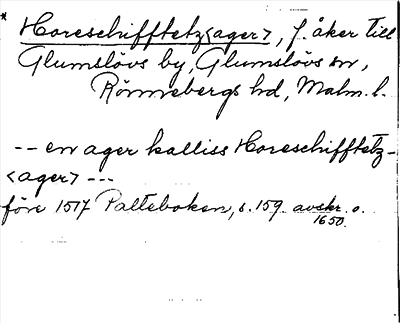 * Horeschifftetz<ager>, f. åker till
Glumslövs by, Glumslövs sn,
Rönnebergs hd, Malm. l.
-- en ager kalliss Horeschifftetz-
<ager> ---
före 1517 Palteboken, s. 159. avskr. o.
1650.